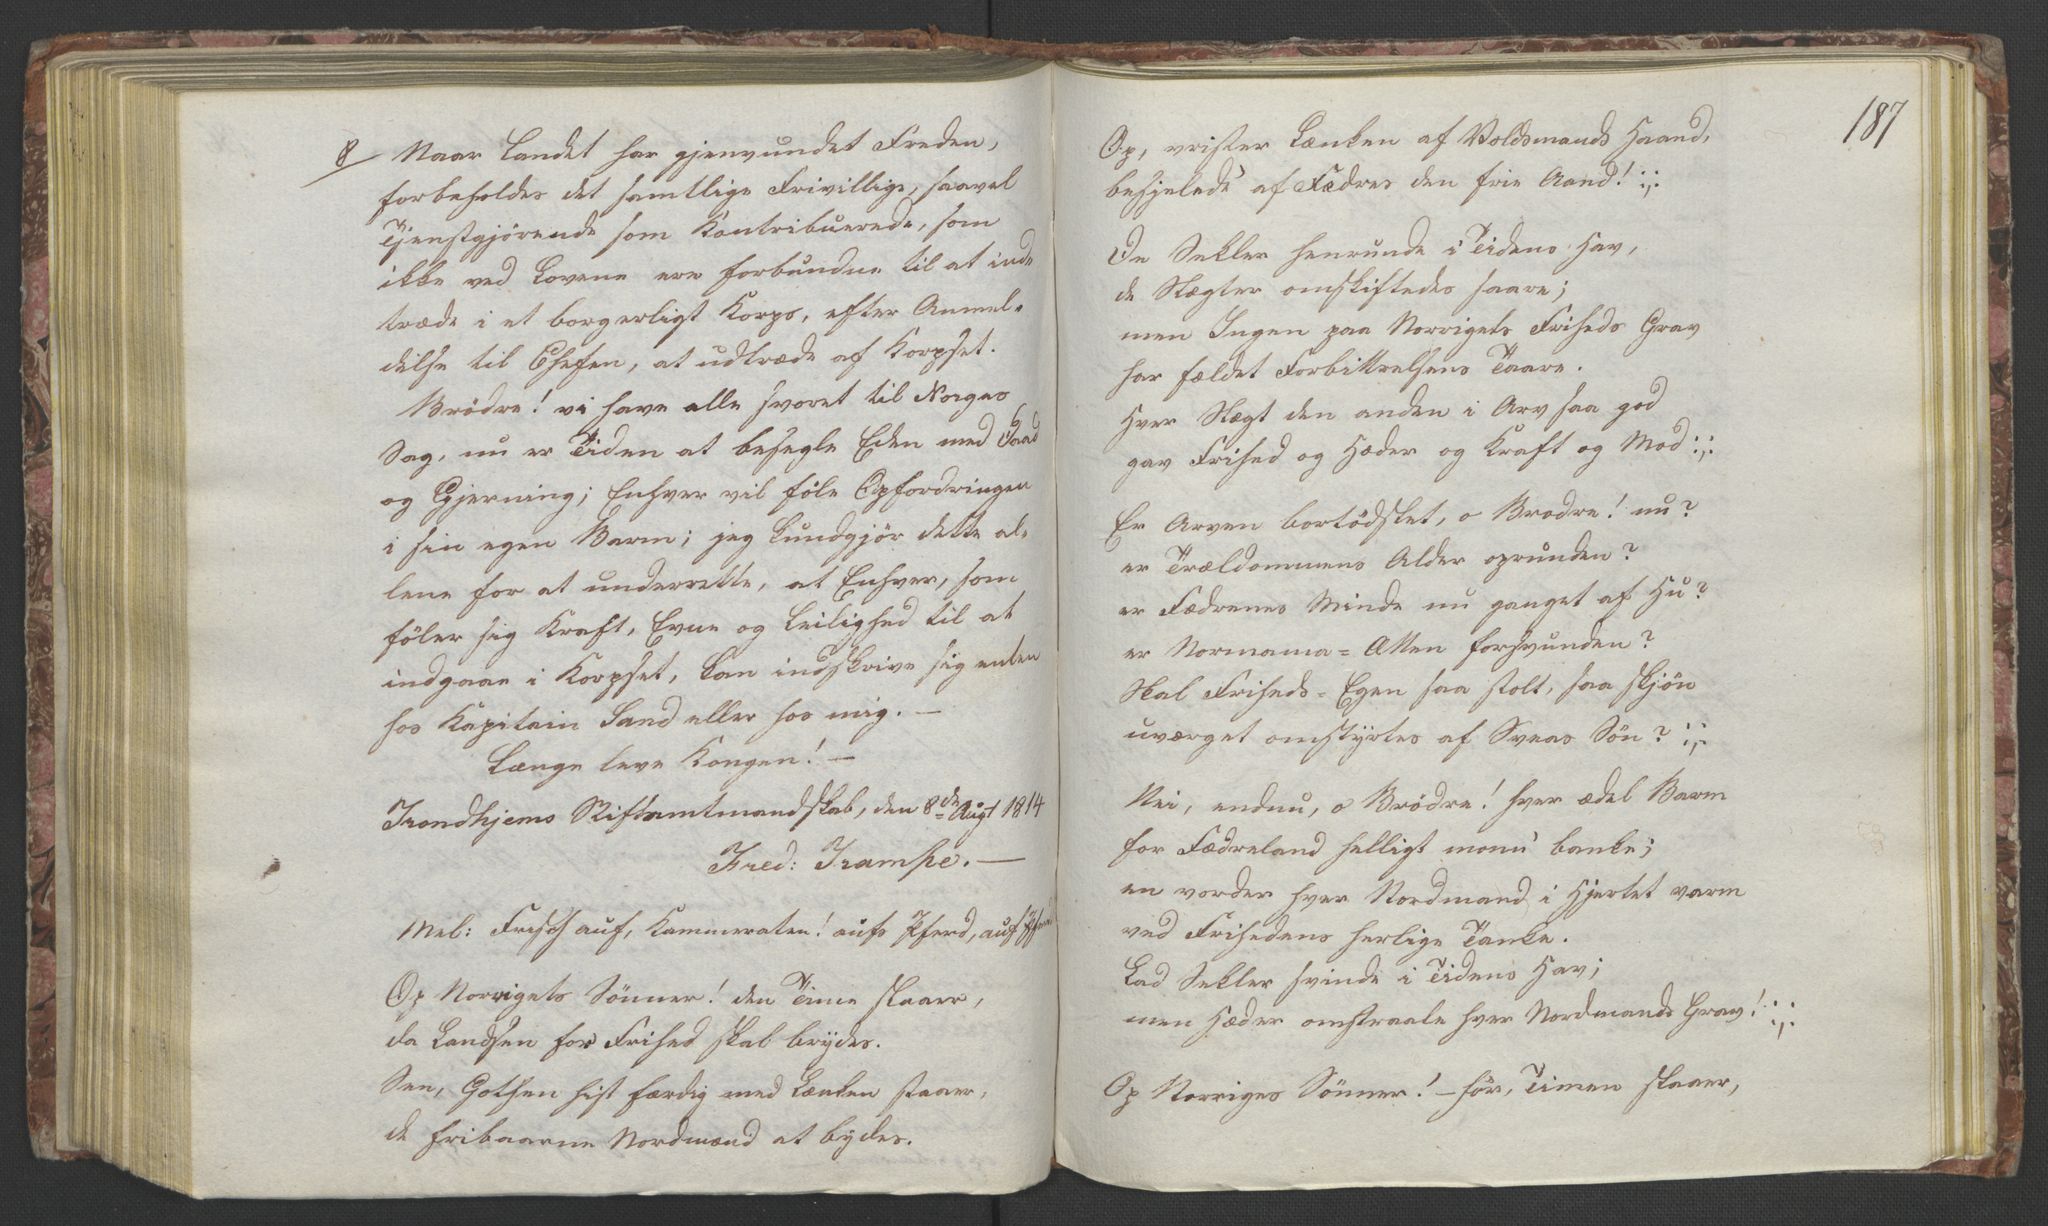 8 Naar Landet har gjenvundet Freden,
forbeholdes det samtlige Frivillige, saavel
Tjenstgjörende som Kontribuerede, som
ikke ved Lovene ere forbundne til at ind
træde i et borgerligt Korps, efter Anmel-
delse til Chefen, at udtræde af Korpset.
Brödre! vi have alle svoret til Norges
Sag, nu er Tiden at besegle Eden med Daad
og Gjerning; Enhver vil föle Opfordringen
i sin egen Barm; jeg kundgjör dette al-
lene for at underrette, at Enhver, som
föler sig Kraft, Evne og Leilighed til at
indgaae i Korpset, kan indskrive sig enten
hos Kapitain Sand eller hos mig. —
Længe leve Kongen! —
Trondhjems Stiftamtmandskab, den 8de Augt 1814
Fred: Trampe. —
Mel: Frisch auf, Kammeraten! aufs Pferd, auf Pferd
Op Norrigets Sönner! den Time slaaer,
da Landsen for Frihed skal brydes.
Seer, Gothen hist færdig med Lænken staaer,
de fribaarne Nordmænd at bydes.
187
Op, vrister Lænken af Voldsmands Haand,
besjelede af Fædres den frie Aand! :,:
De Sekler henrunde i Tidens Hav,
de Slægter omskiftedes saare;
men Ingen paa Norrigets Friheds Grav
har fældet Forbittrelsens Taare.
Hver Slægt den anden i Arv saa god
gav Frihed og Hæder og Kraft og Mod :,:
Er Arven bortödslet, o Brodre! nu?
er Trældommens Alder oprunden?
er Fædrenes Minde nu ganget af Hu?
er Normama-Ætten forsvunden?
Skal Friheds-Egen saa stolt, saa skjön
uværget omstyrtes af Sveas Sön? :,:
Nei, endnu, o Brödre! hver ædel Barm
for Fædreland helligt monn banke;
en vorder hver Nordmand i Hjertet varm
ved Frihedens herlige Tanke.
Lad Sekler svinde i Tidens Hav;
men Hæder omstraale hver Nordmands Grav! :,:
Op Norriges Sönner! — hör, Timen slaaer,